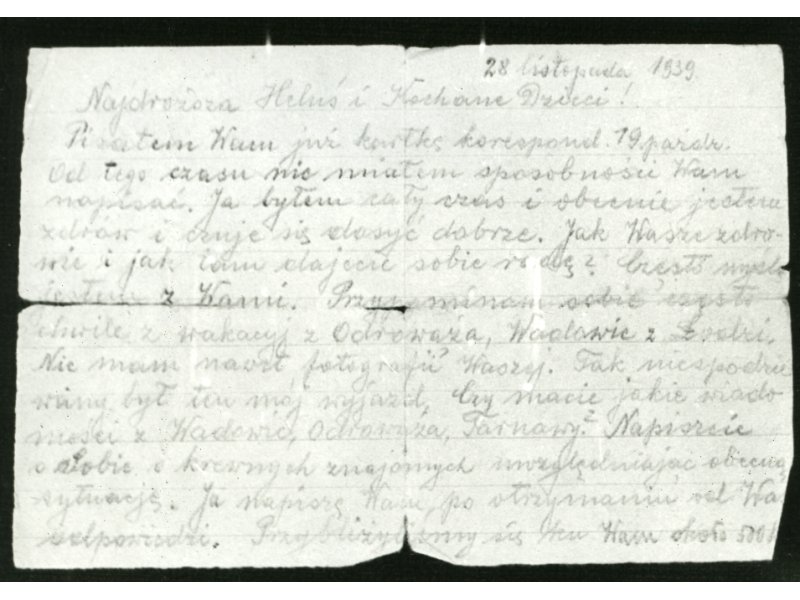 28 listopada 1939
Najdroższa Heluś i Kochane Dzieci!
Pisałem Wam już kartkę korespond. 19 paźdz.
Od tego czasu nie miałem sposobności Wam
napisać. Ja byłem cały czas i obecnie jestem
zdrów i czuję się dosyć dobrze. Jak Wasze zdro-
wie i jak tam dajecie sobie radę? Często myślą
jestem z Wami. Przypominam sobie często
chwile z wakacyj z Odrowąża, Wadowic z Łodzi.
Nie mam nawet fotografii Waszej. Tak niespodzie
wany był ten mój wyjazd. Czy macie jakie wiado-
mości z Wadowic, Odrowąża, Tarnawy? Napiszcie
o Sobie o krewnych znajomych uwzględniając obecną
sytuację. Ja napiszę Wam, po otrzymaniu od Wa
odpowiedzi. Przybliżyliśmy się ku Wam około 500